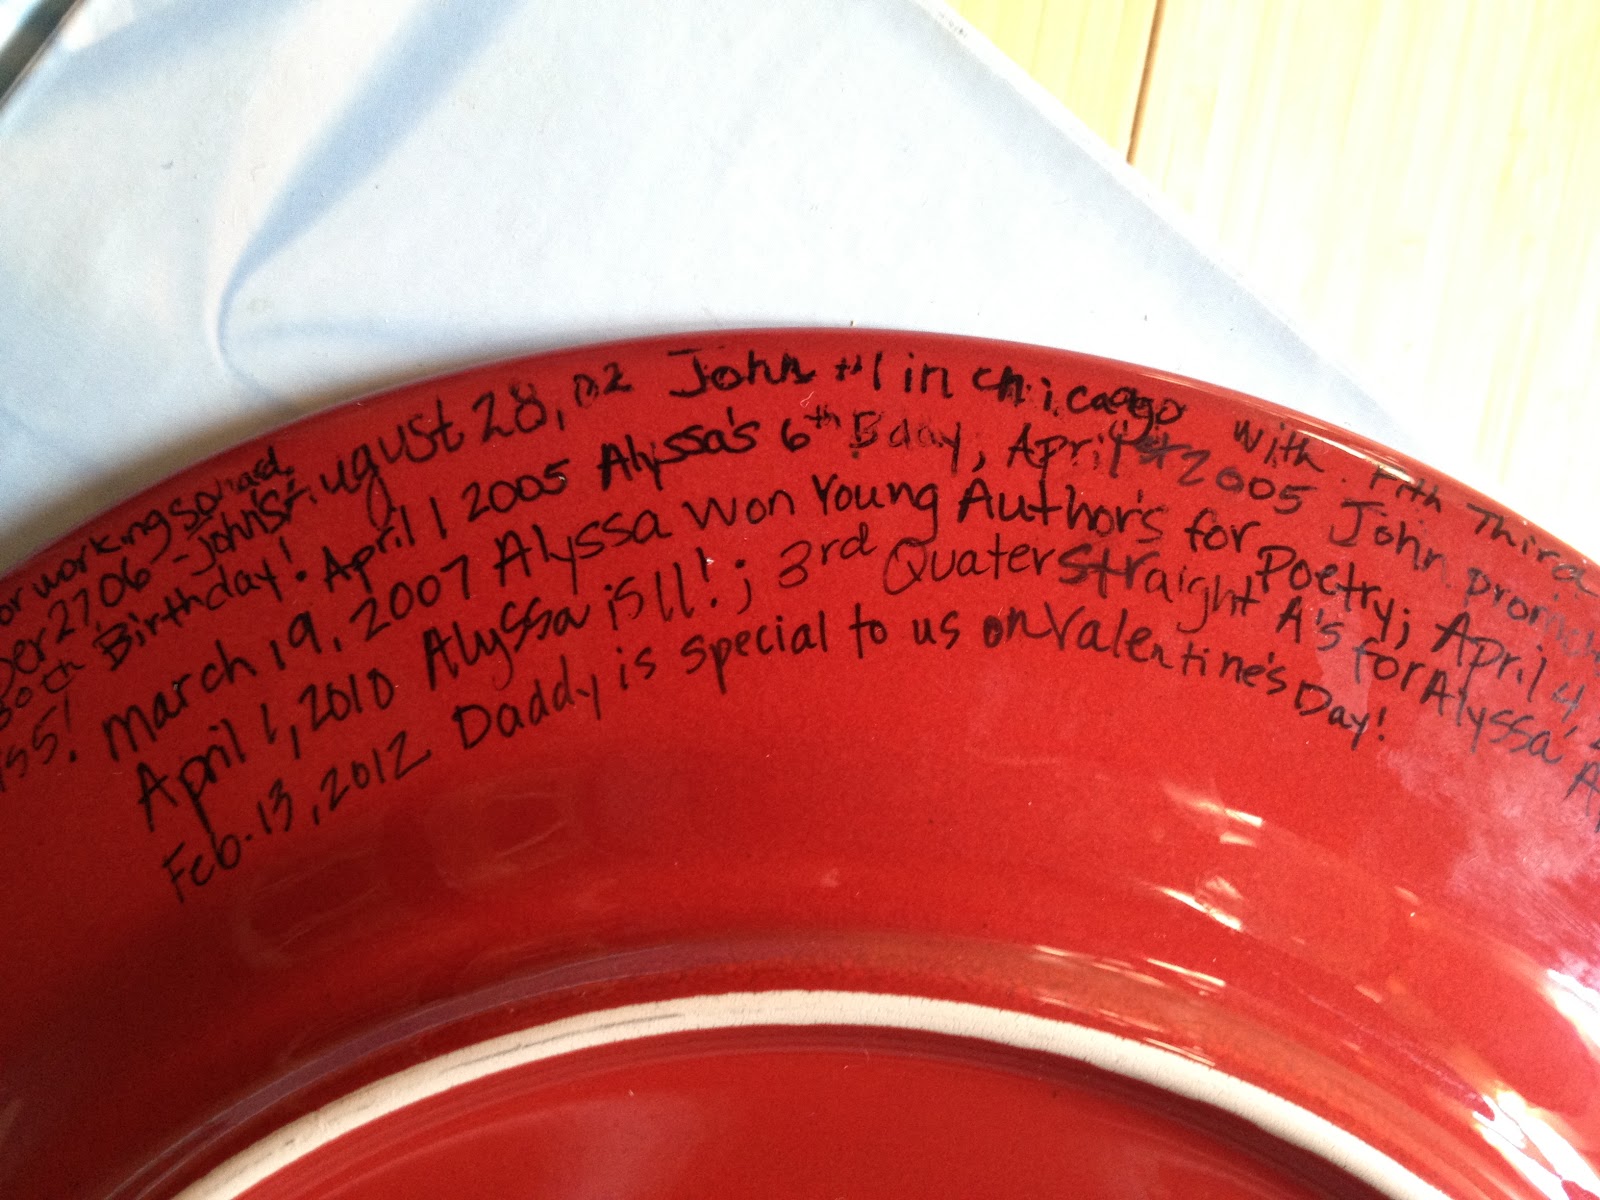 August 28, 02 John #1 in chicago with Fifth Third
or working so hard.
27 06 - John's April 1 2005 Alyssa's 6th Bday, April 2005 John promo
Birthday! March 19, 2007 Alyssa won Young Author's for Poetry; April 4,
April 1, 2010 Alyssa is 11!; 3rd Quater straight A's for Alyssa
Feb. 13, 2012 Daddy is special to us on Valentine's Day!